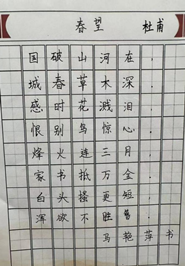 春望 杜甫
国破山河在，
城春草木深，
感时花溅泪，
恨别鸟惊心，
烽火连三月，
家书抵万金，
白头搔更短，
浑欲不胜簪。
马艳萍书